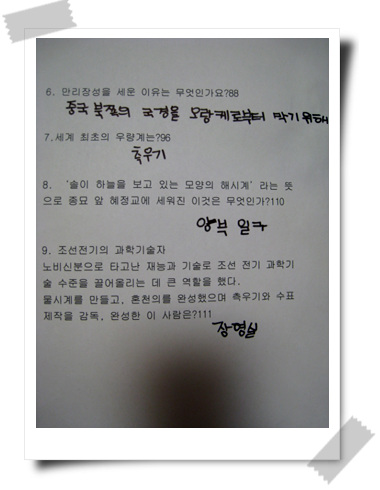 6. 만리장성을 세운 이유는 무엇인가요?88
중국 북쪽의 국경을 오랑케로부터 막기위해
7.세계 최초의 우량계는?96
측우기
8. '솥이 하늘을 보고 있는 모양의 해시계' 라는 뜻
으로 종묘 앞 혜정교에 세워진 이것은 무엇인가?110
앙부 일구
9. 조선전기의 과학기술자
노비신분으로 타고난 재능과 기술로 조선 전기 과학기
술 수준을 끌어올리는 데 큰 역할을 했다.
물시계를 만들고, 혼천의를 완성했으며 측우기와 수표
제작을 감독, 완성한 이 사람은?111
장영실